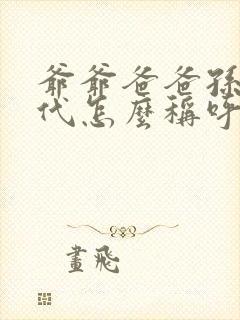 爺爺爸爸孫
代怎麼稱呼
畫飛